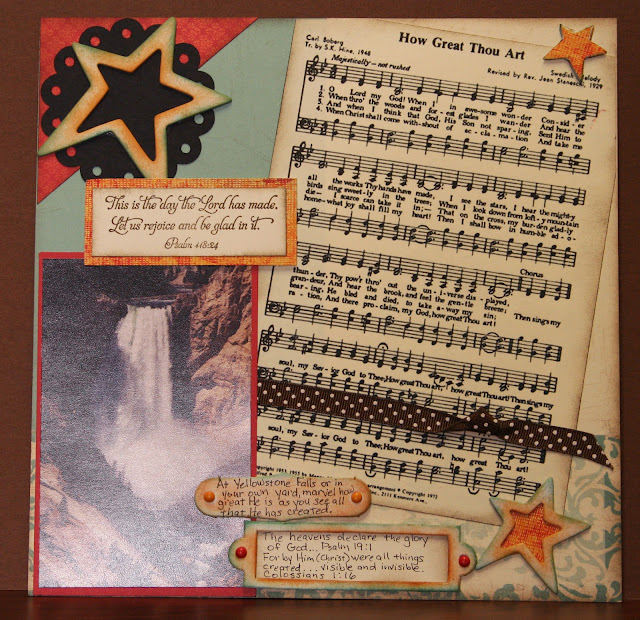 How Great Thou Art
Carl Boberg
Tr. by S.K. Hine, 1948
Swedish Melody
Majestically — not rushed
Revised by Rev. Jean 1929
1. O Lord my God! When I in awe-some won-der Con-sid-er
2. When thro' the woods and for-est glades I wan-der And hear the
3. And when I think that God, His Son not spar-ing, Sent Him to
4. When Christ shall come with-shout of ac-cla-ma-tion And take me
all the works Thy hands have made, I see the stars, I hear the mighty
birds sing sweet-ly in the trees; When I look down from loft-y mountain
die— I scarce can take it in;— That on the cross, my bur-den glad-ly
home—what joy shall fill my heart! Then I shall bow in hum-ble ad-o-
Chorus
thun-der, Thy pow'r thro' out the un-i-verse dis-played;
gran-deur, And hear the brook and feel the gen-tle breeze; Then sings my
bear-ing, He bled and died, to take a-way my sin;
ra-tion, And there pro-claim, my God, how great Thou art!
soul, my Sav-ior God to Thee; How great Thou art, how great Thou art! Then sings my
soul, my Sav-ior God to Thee; How great Thou art, how great Thou art!
arrangement © Copyright 1972
This is the day the Lord has made,
Let us rejoice and be glad in it.
Psalm 118:24
At Yellowstone Falls or in
your own yard, marvel how
great He is as you see all
that He has created.
The heavens declare the glory
of God... Psalm 19:1
For by Him (Christ) were all things
created... visible and invisible.
Colossians 1:16